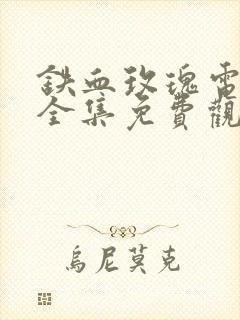 鉄血玫瑰電
全集免費觀
烏尼莫克